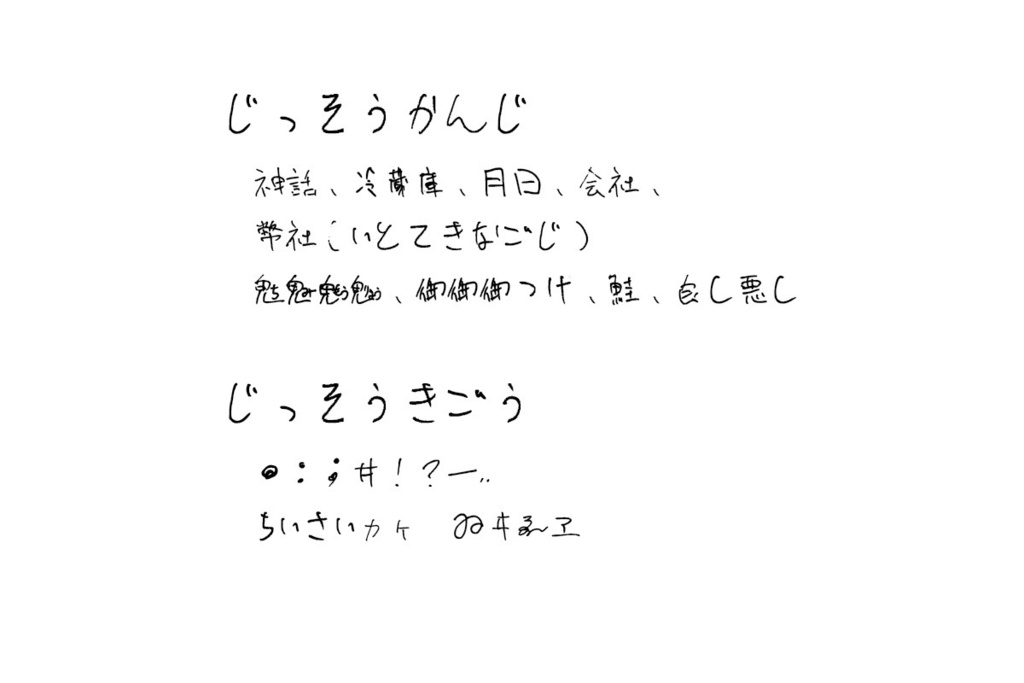 じっそうかんじ
神話、冷蔵庫、月日、会社、
弊社(いとてきなごじ)
魑魅魍魎、御御御つけ、鮭、良し悪し
じっそうきごう
@:;#!?ー..
ちいさいヵヶ ゐヰゑヱ